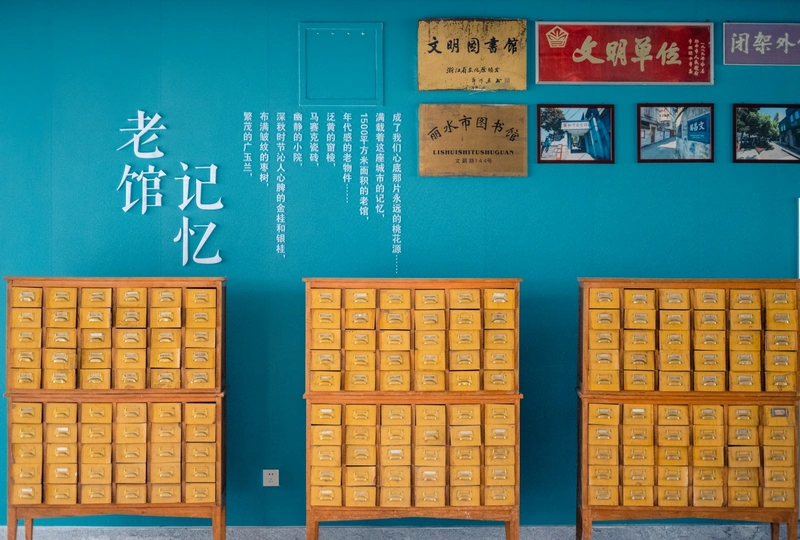 老馆
记忆
繁茂的广玉兰,
布满皱纹的枣树,
深秋时节沁人心脾的金桂和银桂,
幽静的小院,
马赛克瓷砖,
泛黄的窗棱,
年代感的老物件……
1500平方米面积的老馆,
满载着这座城市的记忆,
成了我们心底那片永远的桃花源……
文明图書馆
丽水市图书馆
LISHUISHITUSHUGUAN
文明单位
闭架外